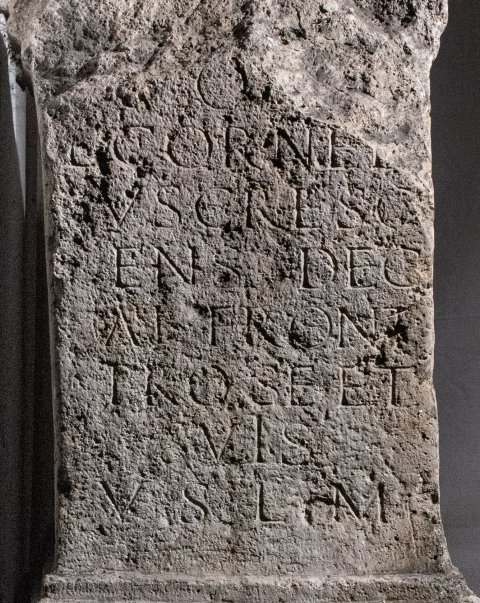 L CORNELI
VS CRESC
ENS DEC
AL FRONT
PRO SE ET
VIS
V S L M